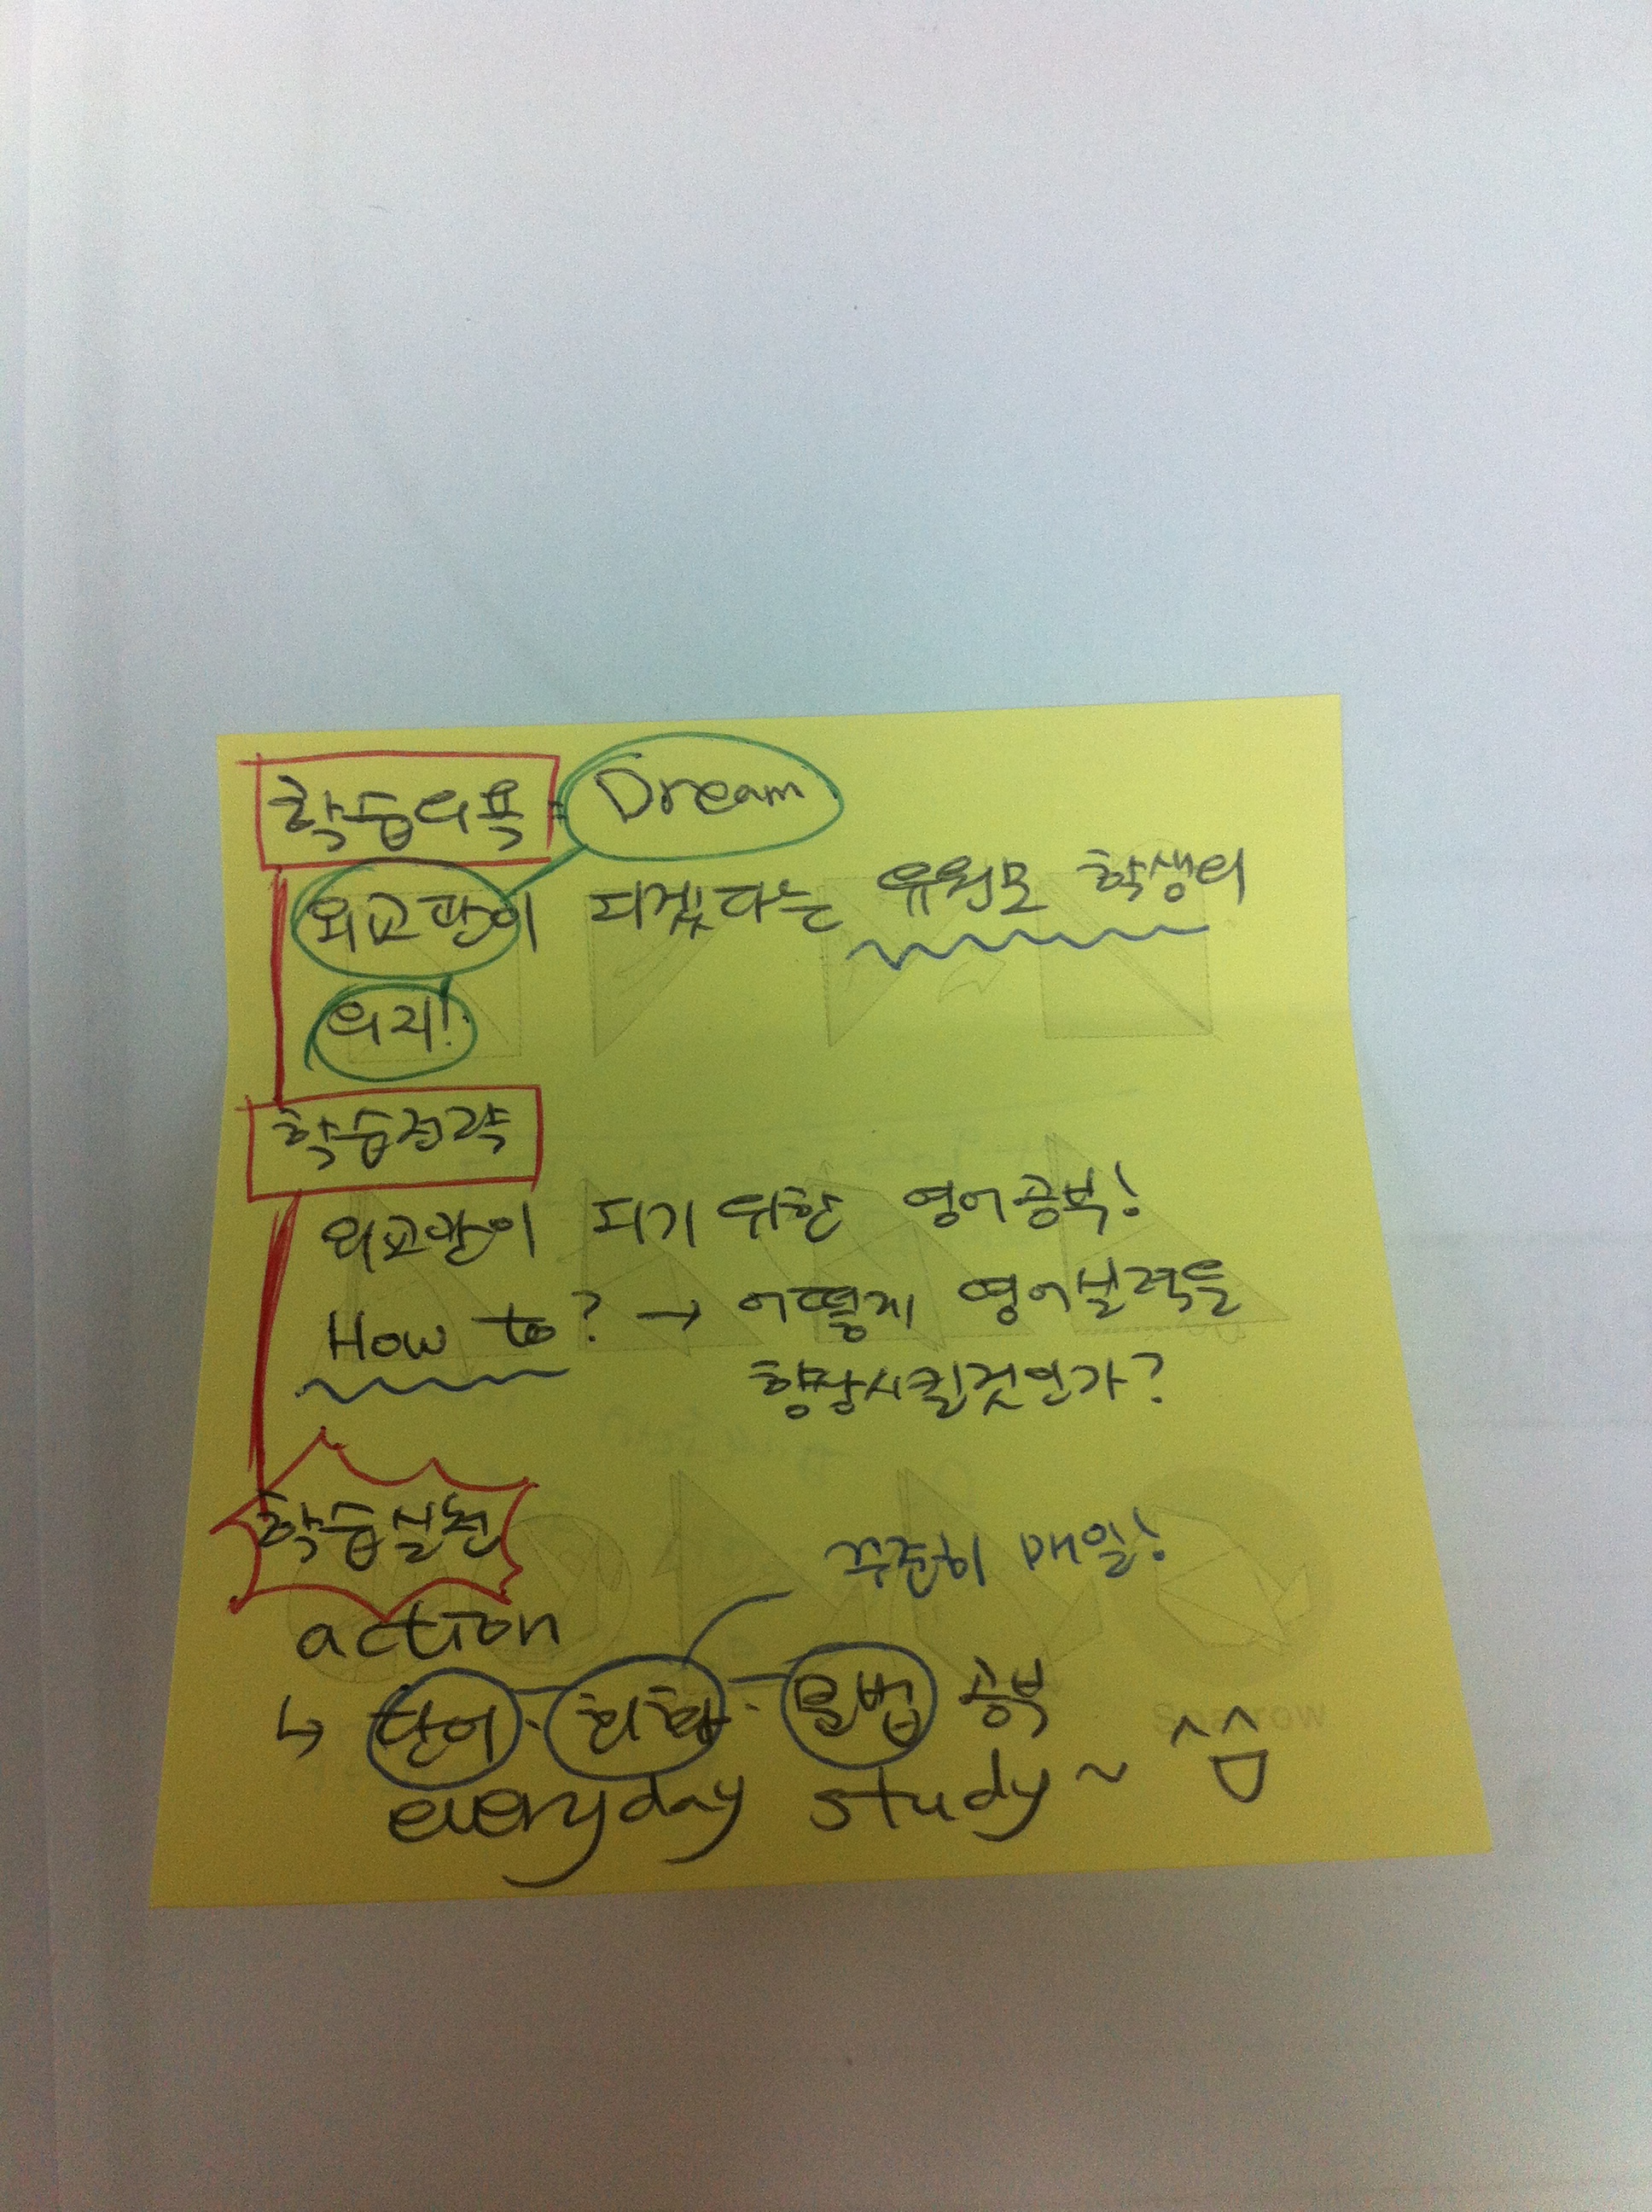 학습의욕 = Dream
외교관이 되겠다는 유원모 학생의
의지!
학습전략
외교관이 되기 위한 영어공부!
How to? → 어떻게 영어실력을
향상시킬것인가?
학습실천
꾸준히 매일!
action
↳ 단어·회화·문법 공부
Sparrow
everyday study~ ^^